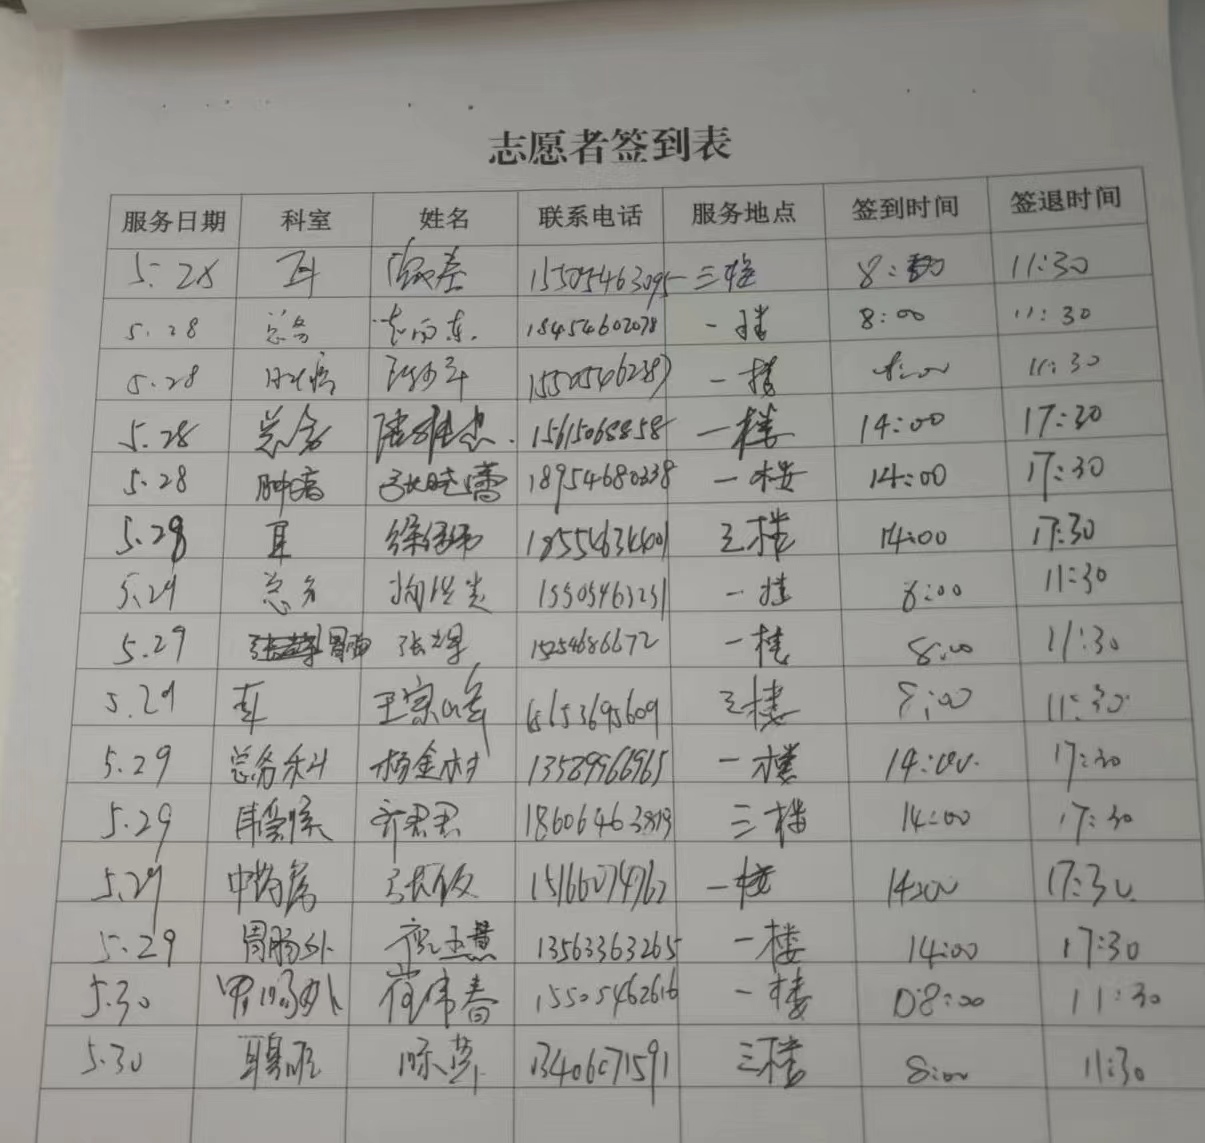 志愿者签到表
服务日期 科室 姓名 联系电话 服务地点 签到时间 签退时间
5.28 耳 15505463095 三楼 8:00 11:30
5.28 总务 18454602078 一楼 8:00 11:30
5.28 一楼 8:00 11:30
5.28 总务 15615068858 一楼 14:00 17:30
5.28 肿瘤 张晓蕾 18954680338 一楼 14:00 17:30
5.28 耳 18554634401 三楼 14:00 17:30
5.29 总务 15505463231 一楼 8:00 11:30
5.29 胃肠 15254686672 一楼 8:00 11:30
5.29 耳 王宗峰 15653695609 三楼 8:00 11:30
5.29 总务科 杨金树 13589966965 一楼 14:00 17:30
5.29 齐君君 18606463819 三楼 14:00 17:30
5.29 中药房 15166074762 一楼 14:00 17:30
5.29 胃肠外 13563363265 一楼 14:00 17:30
5.30 崔伟春 15505462616 一楼 08:00 11:30
5.30 13406071591 三楼 8:00 11:30